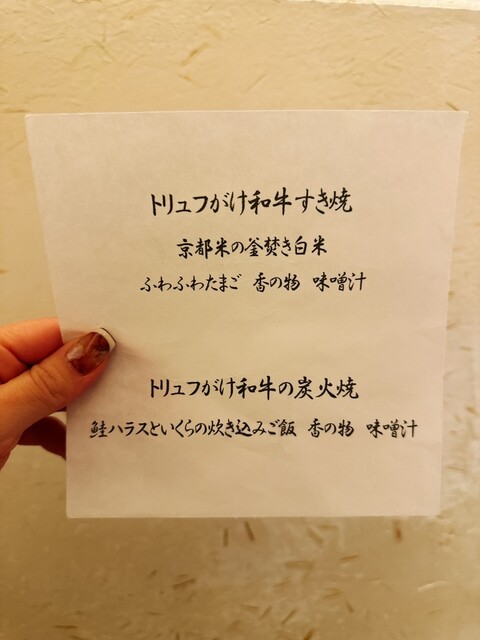 トリュフがけ和牛すき焼
京都米の釜焚き白米
ふわふわたまご 香の物 味噌汁
トリュフがけ和牛の炭火焼
鮭ハラスといくらの炊き込みご飯 香の物 味噌汁